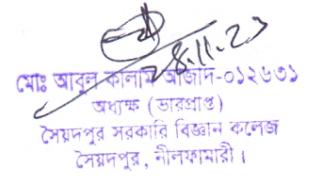 ২৪.11.23
মোঃ আবুল কালাম আজাদ-০১২৬৩১
অধ্যক্ষ (ভারপ্রাপ্ত)
সৈয়দপুর সরকারি বিজ্ঞান কলেজ
সৈয়দপুর, নীলফামারী।